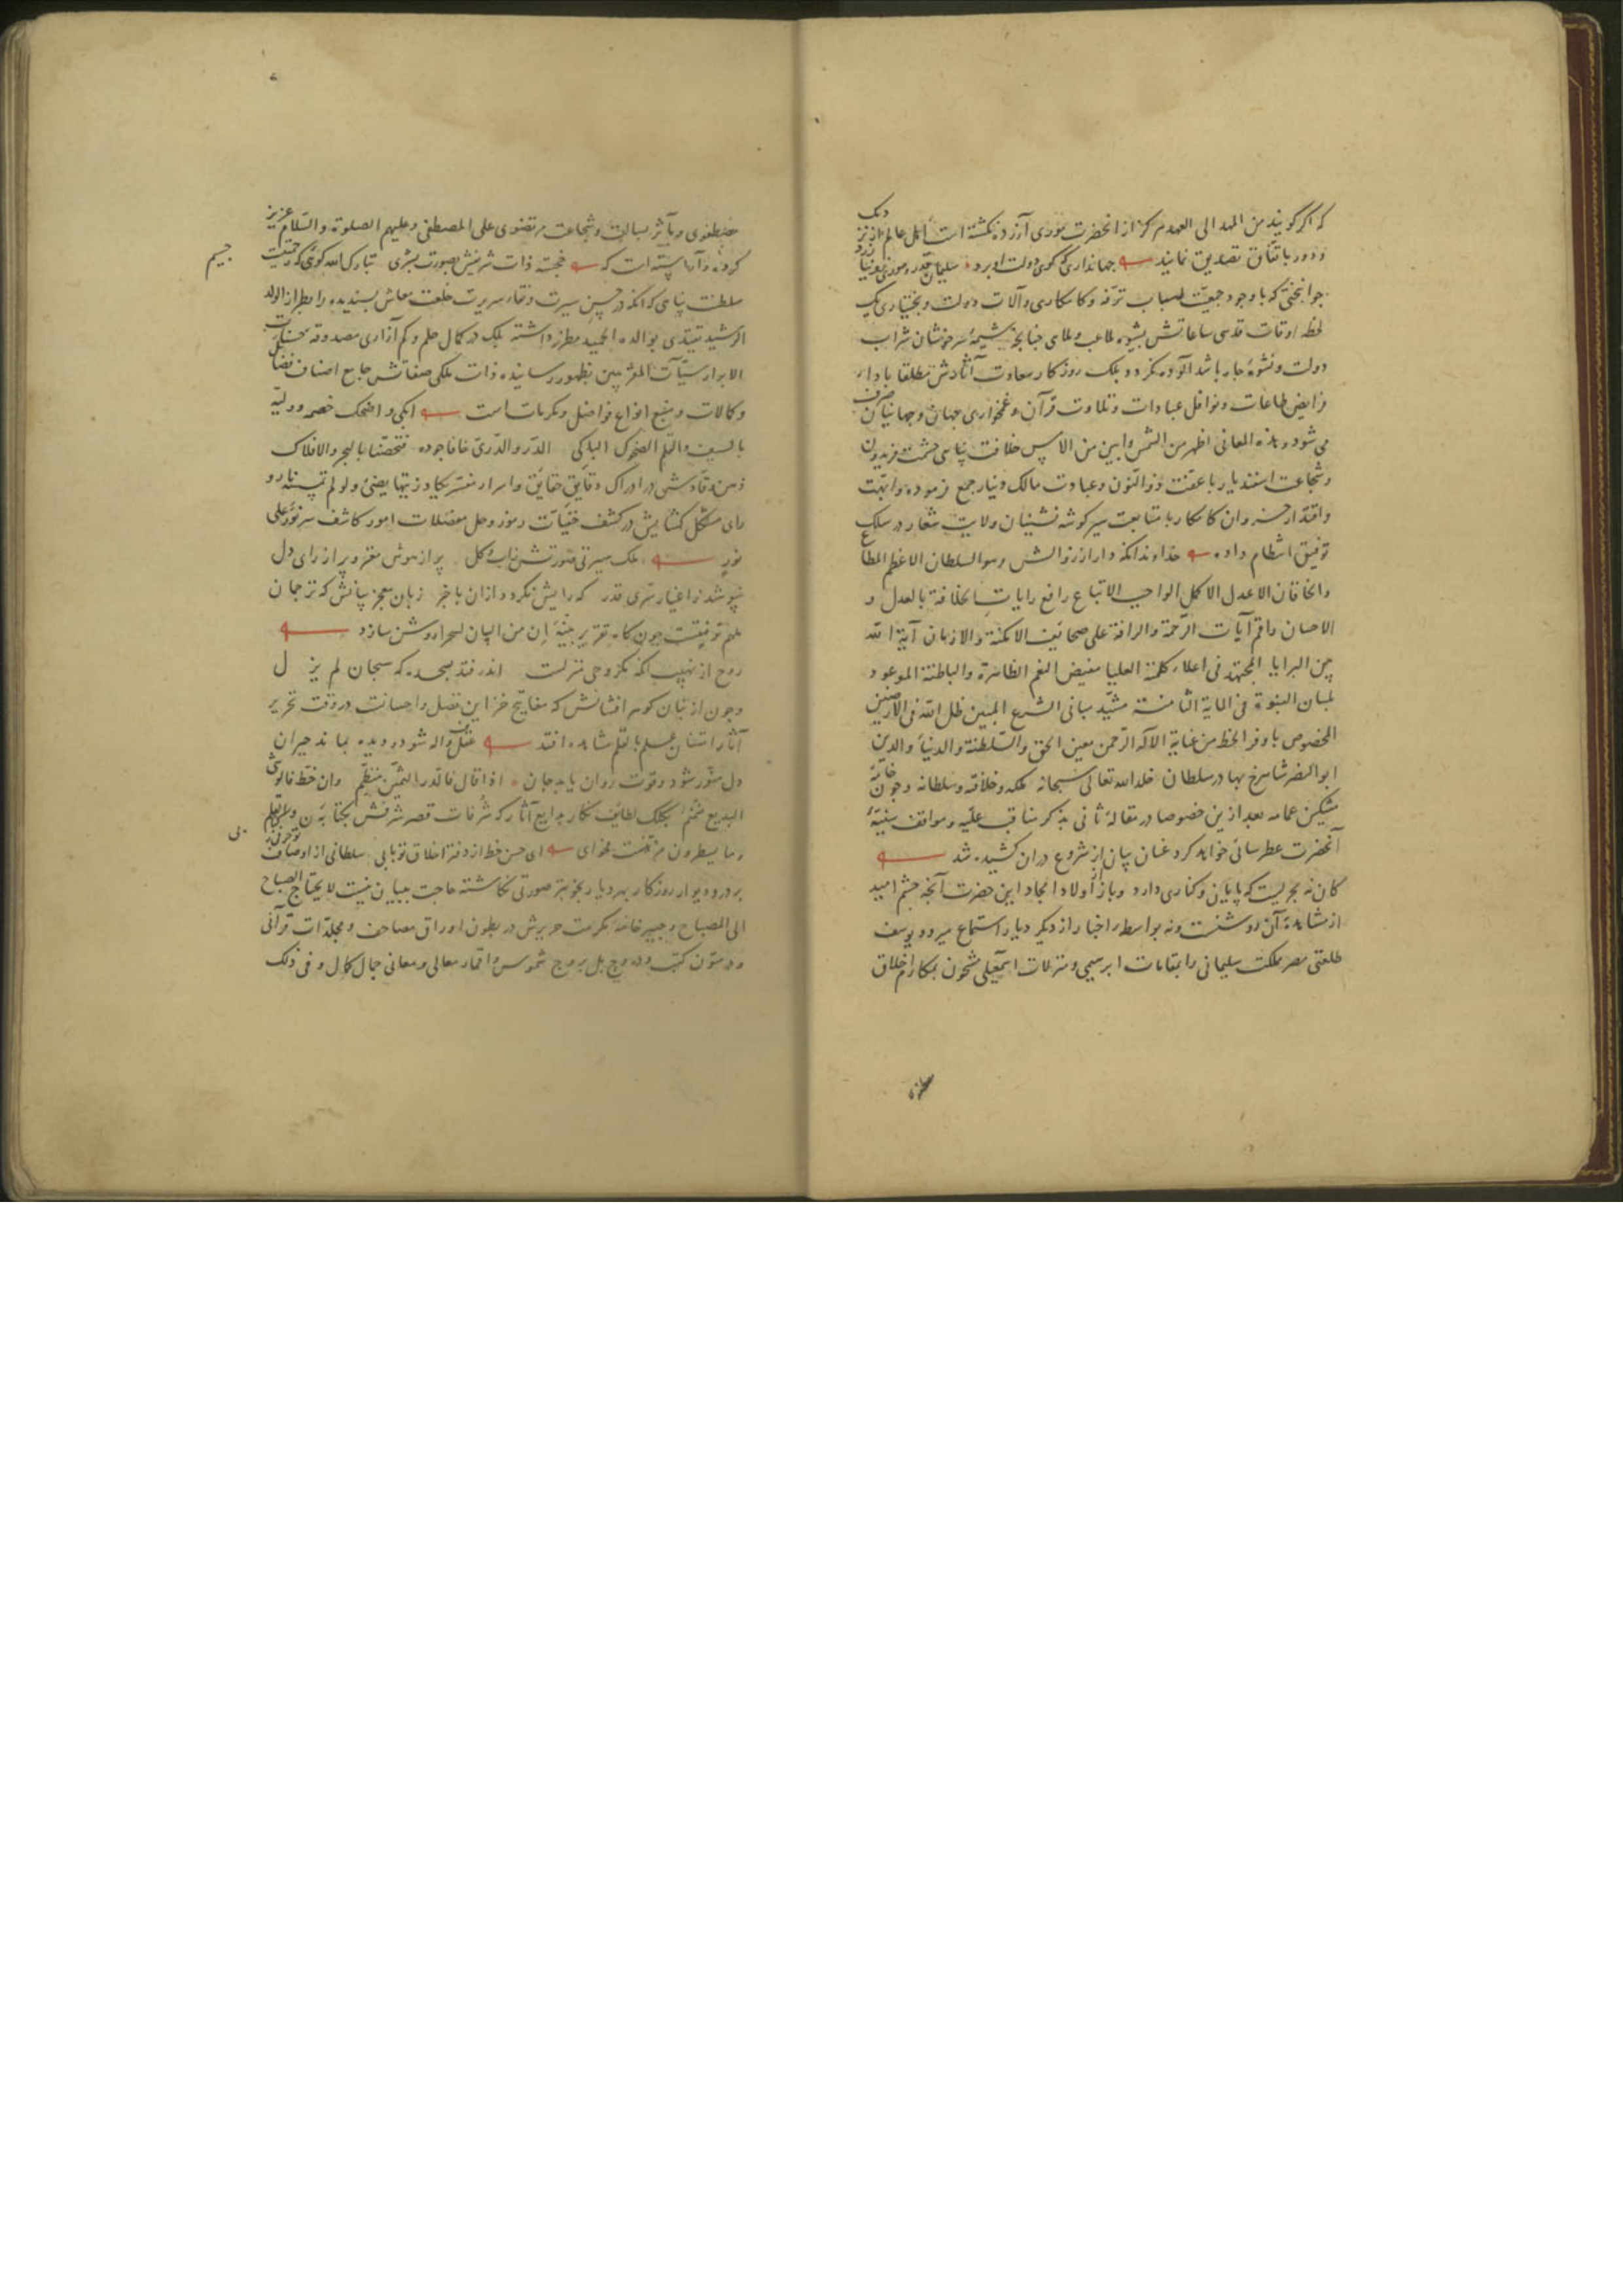 که اگر گویند من المهد الی العهد هرگز از آنحضرت موری آزرده نگشته است اهل عالم
دور باتفاق تصدیق نمایند جهانداری که گوی دولت او برد سلیمان قدر و موری
جوانبختی که با وجود جمعیت اسباب ترفه و کامکاری و آلات دولت و بختیاری یک
لحظه اوقات قدسی ساعاتش بشیوه ملاعب و ملاهی چنانچه شیمهٔ سرخوشان شراب
دولت و نشوهٔ جاه باشد آلوده نگردد بلک روزگار سعادت آثارش مطلقا باداء
فرایض طاعات و نوافل عبادات و تلاوت قرآن و غمخواری جهان و جهانیان صرف
می شود و هذه المعانی اظهر من الشمس وابین من الامس خلافت پناهی حشمت فریدون
و شجاعت اسفندیار با عفت ذو النون و عبادت مالک دینار جمع فرموده و ابهت
و اقتدار خسروان کامکار با متابعت سیر گوشه نشینان ولایت شعار در سلک
توفیق انتظام داده خداوندا نگه دار از زوالش وهو السلطان الاعظم المطاع
والخاقان الاعدل الاکمل الواجب الاتباع رافع رایات الخلافة بالعدل و
الاحسان راقم آیات الرحمة والرافة علی صحائف الامکنة والازمان آیة الله
بین البرایا المجتهد فی اعلاء کلمة العلیا مفیض النعم الظاهرة والباطنة الموعود
بلسان النبوة فی المایة الثامنة مشید مبانی الشرع المبین ظل الله فی الارضین
المخصوص باوفر الحظ من عنایة الاله الرحمن معین الحق والسلطنة والدنیا والدین
ابوالنصر شاهرخ بهادر سلطان خلد الله تعالی سبحانه ملکه وخلافته وسلطانه و چون خامهٔ
مشکین عمامه بعد ازین خصوصا در مقالهٔ ثانی بذکر مناقب علیه و مواقف سنیهٔ
آنحضرت عطرسائی خواهد کرد عنان بیان از شروع دران کشیده شد
کان نه بحریست که پایان و کناری دارد و باز اولاد امجاد این حضرت آنچه چشم امید
از مشاهدهٔ آن روشنست و نه بواسطه اخبار از دیگر دیار استماع میرود یوسف
طلعتی مصر مملکت سلیمانی را بمقامات ابرهیمی و منزلات اسمعیلی مشحون بمکارم اخلاق
مصطفوی و مآثر بسالت و شجاعت مرتضوی علی المصطفی وعلیهم الصلوة والسلام عزیز
کرده و آراسته است که خجسته ذات شریفش بصورت بشری تبارک الله گوئی که رحمتیست جسیم
سلطنت پناهی که آنکه در حسن سیرت و نقاء سریرت خلعت معاش پسندیده را بطراز الولد
الرشید یقتدی بوالده الحمید مطرز داشته بلک در کمال حلم و کم آزاری مصدوقه حسنات
الابرار سیآت المقربین بظهور رسانیده ذات ملکی صفاتش جامع اصناف فضایل
و کمالات و منبع انواع فواضل و مکرمات است ابکی واضحک خصمه وولیه
بالسیف والقلم الضحوک الباکی الدر والدری خافا جوده فتحصنا بالبحر والافلاک
ذهن وقادش در ادراک دقایق حقایق و اسرار مفسر یکاد زیتها یضیئ ولو لم تمسسه نار و
رای مشکل گشایش در کشف خفیات رموز و حل معضلات امور کاشف سر نور علی
نور ملک سیرتی صورتش زاب و گل پر از هوش مغز و پر از رای دل
نپوشد ز اغیار سری قدر که رایش نگردد ازان با خبر زبان معجز بیانش که ترجمان
ملهم توفیقست چون گاه تقریر بینهٔ ان من البیان لسحرا روشن سازد
روح از نهیب آنکه مگر وحی منزلست اندر فتد بسجده که سبحان لم یزل
و چون از بنان گوهر افشانش که مفاتیح خزاین فضل و احسانست در وقت تحریر
آثار امتنان علم بالقلم مشاهده افتد عقل واله شود و دیده بماند حیران
دل منور شود و قوت روان یابد جان اذا قال فالدر الثمین منظم وان خط فالوشی
البدیع منمنم بکلک لطایف نگار بدایع آثار که شرفات قصر شرفش بکتابه ن والقلم
وما یسطرون مزینست فحوای ای حسن خط از دفتر اخلاق تو بابی سلطانی از اوصاف تو حرفی
بر در و دیوار روزگار بهر دیار بخوبتر صورتی نگاشته حاجت ببیان نیست لا یحتاج الصباح
الی المصباح و خامهٔ مکرمت در بطون اوراق مصاحف و مجلدات قرآنی
و در متون کتب و بل بروج شموس و اقمار معالی و معانی جمال کمال وفی ذلک